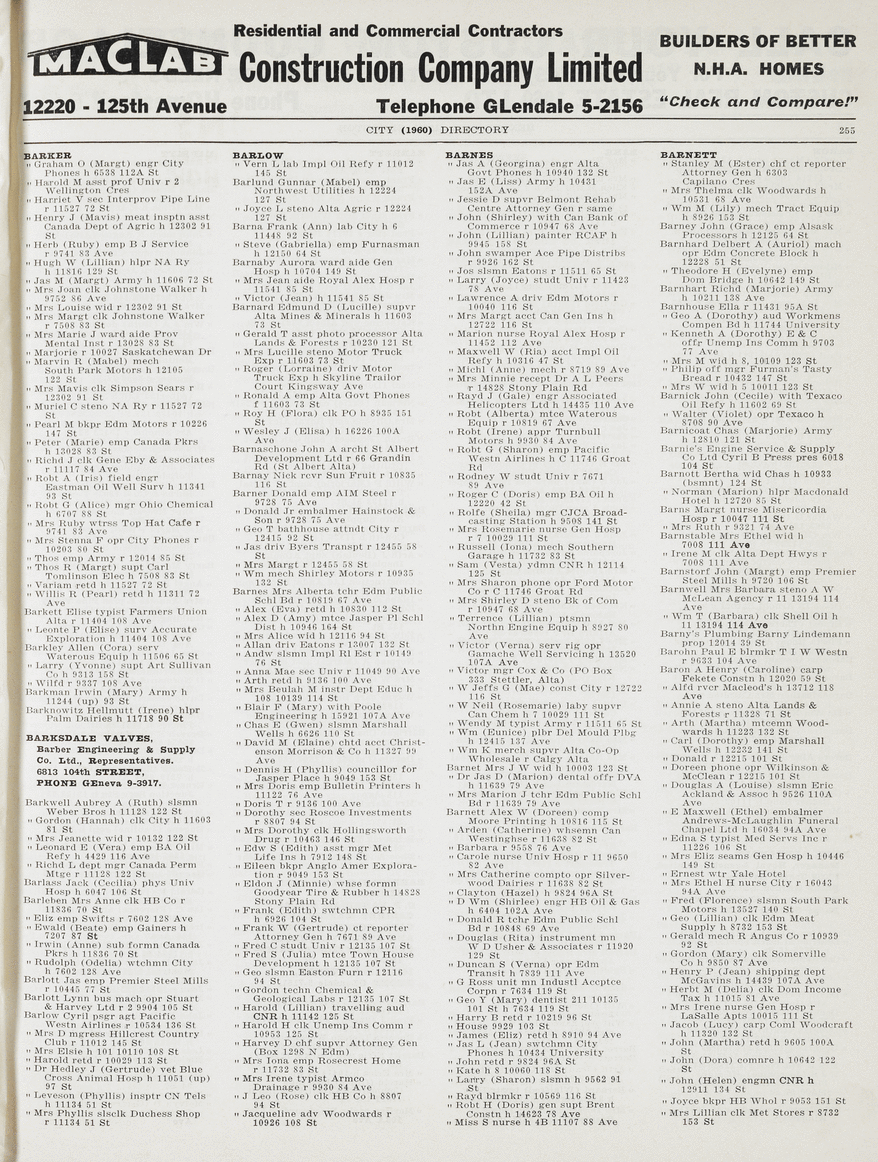 MACLAB
Residential and Commercial Contractors
Construction Company Limited
BUILDERS OF BETTER
N.H.A. HOMES
12220 - 125th Avenue
Telephone GLendale 5-2156
"Check and Compare!"
CITY (1960) DIRECTORY
255
BARKER
" Graham O (Margt) engr City
Phones h 6538 112A St
" Harold M asst prof Univ r 2
Wellington Cres
" Harriet V sec Interprov Pipe Line
r 11527 72 St
" Henry J (Mavis) meat insptn asst
Canada Dept of Agric h 12302 91
St
" Herb (Ruby) emp B J Service
r 9741 83 Ave
" Hugh W (Lillian) hlpr NA Ry
h 11816 129 St
" Jas M (Margt) Army h 11606 72 St
" Mrs Joan clk Johnstone Walker h
9752 86 Ave
" Mrs Louise wid r 12302 91 St
" Mrs Margt clk Johnstone Walker
r 7508 83 St
" Mrs Marie J ward aide Prov
Mental Inst r 13028 83 St
" Marjorie r 10027 Saskatchewan Dr
" Marvin R (Mabel) mech
South Park Motors h 12105
122 St
" Mrs Mavis clk Simpson Sears r
12302 91 St
" Muriel C steno NA Ry r 11527 72
St
" Pearl M bkpr Edm Motors r 10226
147 St
" Peter (Marie) emp Canada Pkrs
h 13028 83 St
" Richd J clk Gene Eby & Associates
r 11117 84 Ave
" Robt A (Iris) field engr
Eastman Oil Well Surv h 11341
93 St
" Robt G (Alice) mgr Ohio Chemical
h 6707 88 St
" Mrs Ruby wtrss Top Hat Cafe r
9741 83 Ave
" Mrs Stenna F opr City Phones r
10203 80 St
" Thos emp Army r 12014 85 St
" Thos R (Margt) supt Carl
Tomlinson Elec h 7508 83 St
" Variam retd h 11527 72 St
" Willis R (Pearl) retd h 11311 72
Ave
Barkett Elise typist Farmers Union
Alta r 11404 108 Ave
" Leonte P (Elise) surv Accurate
Exploration h 11404 108 Ave
Barkley Allen (Cora) serv
Waterous Equip h 11506 65 St
" Larry (Yvonne) supt Art Sullivan
Co h 9313 158 St
" Wilfd r 9337 108 Ave
Barkman Irwin (Mary) Army h
11244 (up) 93 St
Barknowitz Hellmutt (Irene) hlpr
Palm Dairies h 11718 90 St
BARKSDALE VALVES,
Barber Engineering & Supply
Co. Ltd., Representatives.
6813 104th STREET,
PHONE GEneva 9-3917.
Barkwell Aubrey A (Ruth) slsmn
Weber Bros h 11128 122 St
" Gordon (Hannah) clk City h 11603
81 St
" Mrs Jeanette wid r 10132 122 St
" Leonard E (Vera) emp BA Oil
Refy h 4429 116 Ave
" Richd L dept mgr Canada Perm
Mtge r 11128 122 St
Barlass Jack (Cecilia) phys Univ
Hosp h 6047 106 St
Barleben Mrs Anne clk HB Co r
11836 70 St
" Eliz emp Swifts r 7602 128 Ave
" Ewald (Beate) emp Gainers h
7207 87 St
" Irwin (Anne) sub formn Canada
Pkrs h 11836 70 St
" Rudolph (Odelia) wtchmn City
h 7602 128 Ave
Barlott Jas emp Premier Steel Mills
r 10445 77 St
Barlott Lynn bus mach opr Stuart
& Harvey Ltd r 2 9904 105 St
Barlow Cyril psgr agt Pacific
Westn Airlines r 10534 136 St
" Mrs D mgress Hillcrest Country
Club r 11012 145 St
" Mrs Elsie h 101 10110 108 St
" Harold retd r 10029 113 St
" Dr Hedley J (Gertrude) vet Blue
Cross Animal Hosp h 11051 (up)
97 St
" Leveson (Phyllis) insptr CN Tels
h 11134 51 St
" Mrs Phyllis slsclk Duchess Shop
r 11134 51 St
BARLOW
" Vern L lab Impl Oil Refy r 11012
145 St
Barlund Gunnar (Mabel) emp
Northwest Utilities h 12224
127 St
" Joyce L steno Alta Agric r 12224
127 St
Barna Frank (Ann) lab City h 6
11448 92 St
" Steve (Gabriella) emp Furnasman
h 12150 64 St
Barnaby Aurora ward aide Gen
Hosp h 10704 149 St
" Mrs Jean aide Royal Alex Hosp r
11541 85 St
" Victor (Jean) h 11541 85 St
Barnard Edmund D (Lucille) supvr
Alta Mines & Minerals h 11603
73 St
" Gerald T asst photo processor Alta
Lands & Forests r 10230 121 St
" Mrs Lucille steno Motor Truck
Exp r 11603 73 St
" Roger (Lorraine) driv Motor
Truck Exp h Skyline Trailor
Court Kingsway Ave
" Ronald A emp Alta Govt Phones
r 11603 73 St
" Roy H (Flora) clk PO h 8935 151
St
" Wesley J (Elisa) h 16226 100A
Ave
Barnaschone John A archt St Albert
Development Ltd r 66 Grandin
Rd (St Albert Alta)
Barnay Nick rcvr Sun Fruit r 10835
116 St
Barner Donald emp AIM Steel r
9728 75 Ave
" Donald Jr embalmer Hainstock &
Son r 9728 75 Ave
" Geo T bathhouse attndt City r
12415 92 St
" Jas driv Byers Transpt r 12455 58
St
" Mrs Margt r 12455 58 St
" Wm mech Shirley Motors r 10935
132 St
Barnes Mrs Alberta tchr Edm Public
Schl Bd r 10819 67 Ave
" Alex (Eva) retd h 10830 112 St
" Alex D (Amy) mtce Jasper Pl Schl
Dist h 10946 164 St
" Mrs Alice wid h 12116 94 St
" Allan driv Eatons r 13007 132 St
" Andw slsmn Impl Rl Est r 10149
76 St
" Anna Mae sec Univ r 11049 90 Ave
" Arth retd h 9136 100 Ave
" Mrs Beulah M instr Dept Educ h
108 10139 114 St
" Blair F (Mary) with Poole
Engineering h 15921 107A Ave
" Chas E (Gwen) slsmn Marshall
Wells h 6626 110 St
" David M (Elaine) chtd acct Christ-
enson Morrison & Co h 11327 99
Ave
" Dennis H (Phyllis) councillor for
Jasper Place h 9049 153 St
" Mrs Doris emp Bulletin Printers h
11122 76 Ave
" Doris T r 9136 100 Ave
" Dorothy sec Roscoe Investments
r 8807 94 St
" Mrs Dorothy clk Hollingsworth
Drug r 10463 146 St
" Edw S (Edith) asst mgr Met
Life Ins h 7912 148 St
" Eileen bkpr Anglo Amer Explora-
tion r 9049 153 St
" Eldon J (Minnie) whse formn
Goodyear Tire & Rubber h 14828
Stony Plain Rd
" Frank (Edith) swtchmn CPR
h 6926 104 St
" Frank W (Gertrude) ct reporter
Attorney Gen h 7671 89 Ave
" Fred C studt Univ r 12135 107 St
" Fred S (Julia) mtce Town House
Development h 12135 107 St
" Geo slsmn Easton Furn r 12116
94 St
" Gordon techn Chemical &
Geological Labs r 12135 107 St
" Harold (Lillian) travelling aud
CNR h 11142 125 St
" Harold H clk Unemp Ins Comm r
10953 125 St
" Harvey D chf supvr Attorney Gen
(Box 1298 N Edm)
" Mrs Iona emp Rosecrest Home
r 11732 83 St
" Mrs Irene typist Armco
Drainage r 9930 84 Ave
" J Leo (Rose) clk HB Co h 8807
94 St
" Jacqueline adv Woodwards r
10926 108 St
BARNES
" Jas A (Georgina) engr Alta
Govt Phones h 10940 132 St
" Jas E (Liss) Army h 10431
152A Ave
" Jessie D supvr Belmont Rehab
Centre Attorney Gen r same
" John (Shirley) with Can Bank of
Commerce r 10947 68 Ave
" John (Lillian) painter RCAF h
9945 158 St
" John swamper Ace Pipe Distribs
r 9926 162 St
" Jos slsmn Eatons r 11511 65 St
" Larry (Joyce) studt Univ r 11423
78 Ave
" Lawrence A driv Edm Motors r
10040 116 St
" Mrs Margt acct Can Gen Ins h
12722 116 St
" Marion nurse Royal Alex Hosp r
11452 112 Ave
" Maxwell W (Ria) acct Impl Oil
Refy h 10316 47 St
" Michl (Anne) mech r 8719 89 Ave
" Mrs Minnie recept Dr A L Peers
r 14828 Stony Plain Rd
" Rayd J (Gale) engr Associated
Helicopters Ltd h 14435 110 Ave
" Robt (Alberta) mtce Waterous
Equip r 10819 67 Ave
" Robt (Irene) appr Turnbull
Motors h 9930 84 Ave
" Robt G (Sharon) emp Pacific
Westn Airlines h C 11746 Groat
Rd
" Rodney W studt Univ r 7671
89 Ave
" Roger C (Doris) emp BA Oil h
12220 42 St
" Rolfe (Sheila) mgr CJCA Broad-
casting Station h 9508 141 St
" Mrs Rosemarie nurse Gen Hosp
r 7 10029 111 St
" Russell (Iona) mech Southern
Garage h 11732 83 St
" Sam (Vesta) ydmn CNR h 12114
125 St
" Mrs Sharon phone opr Ford Motor
Co r C 11746 Groat Rd
" Mrs Shirley D steno Bk of Com
r 10947 68 Ave
" Terrence (Lillian) ptsmn
Northn Engine Equip h 8927 80
Ave
" Victor (Verna) serv rig opr
Gamache Well Servicing h 13520
107A Ave
" Victor mgr Cox & Co (PO Box
333 Stettler, Alta)
" W Jeffs G (Mae) const City r 12722
116 St
" W Neil (Rosemarie) laby supvr
Can Chem h 7 10029 111 St
" Wendy M typist Army r 11511 65 St
" Wm (Eunice) plbr Del Mould Plbg
h 12415 137 Ave
" Wm K merch supvr Alta Co-Op
Wholesale r Calgy Alta
Barnet Mrs J W wid h 10003 123 St
" Dr Jas D (Marion) dental offr DVA
h 11639 79 Ave
" Mrs Marion J tchr Edm Public Schl
Bd r 11639 79 Ave
Barnett Alex W (Doreen) comp
Moore Printing h 10816 115 St
" Arden (Catherine) whsemn Can
Westinghse r 11638 82 St
" Barbara r 9558 76 Ave
" Carole nurse Univ Hosp r 11 9650
82 Ave
" Mrs Catherine compto opr Silver-
wood Dairies r 11638 82 St
" Clayton (Hazel) h 9824 96A St
" D Wm (Shirlee) engr HB Oil & Gas
h 6404 102A Ave
" Donald R tchr Edm Public Schl
Bd r 10848 69 Ave
" Douglas (Rita) instrument mn
W D Usher & Associates r 11920
129 St
" Duncan S (Verna) opr Edm
Transit h 7839 111 Ave
" G Ross unit mn Industl Acceptce
Corpn r 7634 119 St
" Geo Y (Mary) dentist 211 10135
101 St h 7634 119 St
" Harry B retd r 10219 96 St
" House 9929 103 St
" James (Eliz) retd h 8910 94 Ave
" Jas L (Jean) swtchmn City
Phones h 10434 University
" John retd r 9824 96A St
" Kate h 8 10060 118 St
" Larry (Sharon) slsmn h 9562 91
St
" Rayd blrmkr r 10569 116 St
" Robt H (Doris) gen supt Brent
Constn h 14623 78 Ave
" Miss S nurse h 4B 11107 88 Ave
BARNETT
" Stanley M (Ester) chf ct reporter
Attorney Gen h 6303
Capilano Cres
" Mrs Thelma clk Woodwards h
10531 68 Ave
" Wm M (Lily) mech Tract Equip
h 8926 153 St
Barney John (Grace) emp Alsask
Processors h 12125 64 St
Barnhard Delbert A (Auriol) mach
opr Edm Concrete Block h
12228 51 St
" Theodore H (Evelyne) emp
Dom Bridge h 10642 149 St
Barnhart Richd (Marjorie) Army
h 10211 138 Ave
Barnhouse Ella r 11431 95A St
" Geo A (Dorothy) aud Workmens
Compen Bd h 11744 University
" Kenneth A (Dorothy) E & C
offr Unemp Ins Comm h 9703
77 Ave
" Mrs M wid h 8, 10109 123 St
" Philip off mgr Furman's Tasty
Bread r 10432 147 St
" Mrs W wid h 5 10011 123 St
Barnick John (Cecile) with Texaco
Oil Refy h 11602 69 St
" Walter (Violet) opr Texaco h
8708 90 Ave
Barnicoat Chas (Marjorie) Army
h 12810 121 St
Barnie's Engine Service & Supply
Co Ltd Cyril B Press pres 6018
104 St
Barnott Bertha wid Chas h 10933
(bsmnt) 124 St
" Norman (Marion) hlpr Macdonald
Hotel h 12720 85 St
Barns Margt nurse Misericordia
Hosp r 10047 111 St
" Mrs Ruth r 9321 74 Ave
Barnstable Mrs Ethel wid h
7008 111 Ave
" Irene M clk Alta Dept Hwys r
7008 111 Ave
Barnstorf John (Margt) emp Premier
Steel Mills h 9720 106 St
Barnwell Mrs Barbara steno A W
McLean Agency r 11 13194 114
Ave
" Wm T (Barbara) clk Shell Oil h
11 13194 114 Ave
Barny's Plumbing Barny Lindemann
prop 12014 39 St
Barohn Paul E blrmkr T I W Westn
r 9633 104 Ave
Baron A Henry (Caroline) carp
Fekete Constn h 12020 59 St
" Alfd rvcr Macleod's h 13712 118
Ave
" Annie A steno Alta Lands &
Forests r 11328 71 St
" Arth (Martha) mtcemn Wood-
wards h 11223 132 St
" Carl (Dorothy) emp Marshall
Wells h 12232 141 St
" Donald r 12215 101 St
" Doreen phone opr Wilkinson &
McClean r 12215 101 St
" Douglas A (Louise) slsmn Eric
Ackland & Assoc h 9526 110A
Ave
" E Maxwell (Ethel) embalmer
Andrews-McLaughlin Funeral
Chapel Ltd h 16034 94A Ave
" Edna S typist Med Servs Inc r
11226 106 St
" Mrs Eliz seams Gen Hosp h 10446
149 St
" Ernest wtr Yale Hotel
" Mrs Ethel H nurse City r 16043
94A Ave
" Fred (Florence) slsmn South Park
Motors h 13527 140 St
" Geo (Lillian) clk Edm Meat
Supply h 8732 153 St
" Gerald mech R Angus Co r 10939
92 St
" Gordon (Mary) clk Somerville
Co h 9850 87 Ave
" Henry P (Jean) shipping dept
McGavins h 14439 107A Ave
" Herbt M (Delia) clk Dom Income
Tax h 11015 81 Ave
" Mrs Irene nurse Gen Hosp r
LaSalle Apts 10015 111 St
" Jacob (Lucy) carp Coml Woodcraft
h 11320 132 St
" John (Martha) retd h 9605 100A
St
" John (Dora) comnre h 10642 122
St
" John (Helen) engmn CNR h
12911 134 St
" Joyce bkpr HB Whol r 9053 151 St
" Mrs Lillian clk Met Stores r 8732
153 St